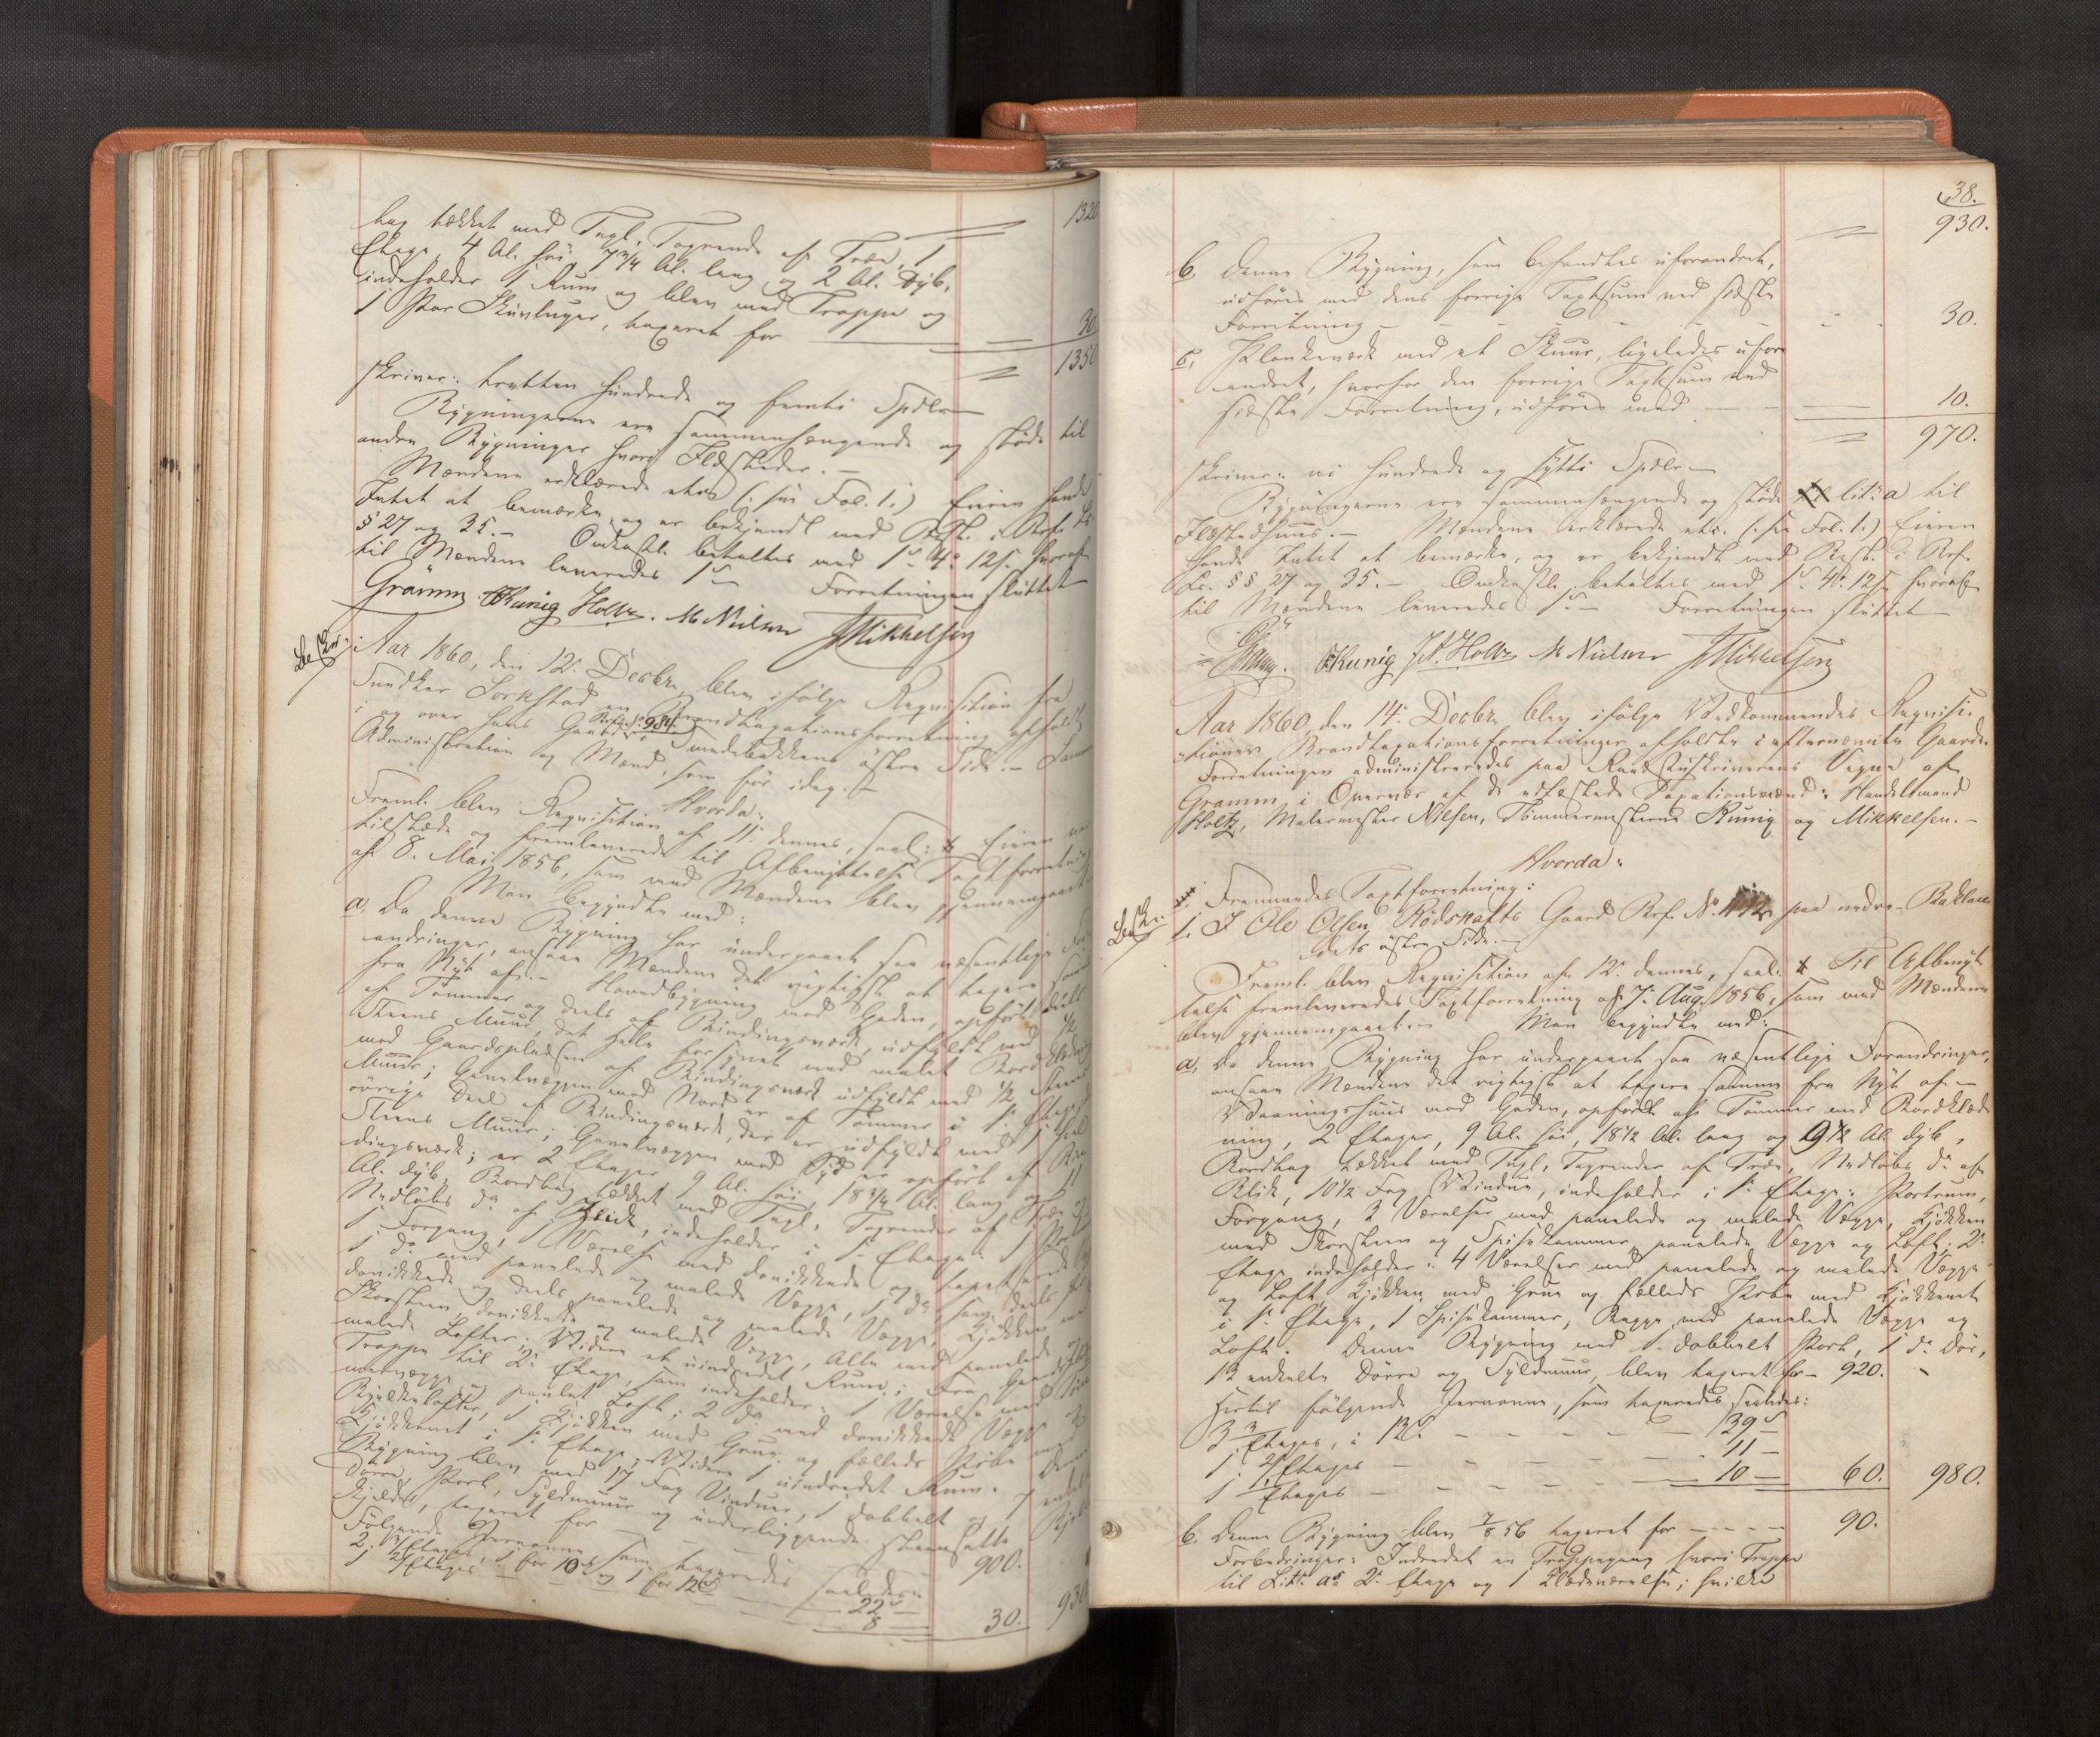 1320
hag tækket med Tagl, Tagrende af Træ, 1
Etage, 4 Al. høi, 7 3/4 Al. lang og 2 Al. dyb,
indeholder 1 Rum og blev med Trappe og
1 Par Skurluger, taxeret for 30.
1350
skriver: tretten hundrede og femti Spdlr
Bygningerne ere sammenhængende og støde til
andre Bygninger hvori Ildsteder. –
Mændene erklærede etc. (: see Fol. 1:) Eieren havde
Intet at bemærke og er bekjendt med Resk. i Brf. Lov
§ 27 og 35. – Omkostn. betaltes med 1 4 12 ß. hvoraf
til Mændene leveredes Forretningen sluttet
Gramm. Kunig Holtz. M Nielsen J Mikkelsen
Aar 1860, den 12 Decbr, blev ifølge Requisition fra
Snedker Lorkstad en Brandtaxationsforretning afholdt
i og over hans Gaard Brf. No. 984 Smedebakkens østre Side. – Samme
Administration og Mænd, som før idag. –
Hvorda:
Freml. blev Requisition af 11 dennes, saal: Eieren var
tilstæde og fremleverede til Afbenyttelse Taxtforretning
af 8. Mai 1856, som med Mændene blev gjennemgaaet.
Man begyndte med:
a, Da denne Bygning har undergaaet saa væsentlige For-
andringer, ansaae Mændene det rigtigst at taxere samme
fra Nyt af. – Hovedbygning mod Gaden, opført deels
af Tømmer og deels af Bindingsværk, udfyldt med 1/2
Steens Muur, det Hele forsynet med malet Bordklædning
mod Gaardspladsen af Bindingsværk udfyldt med 1/2 Steens
Muur; Gavelvæggen mod Nord er af Tømmer i 1 Etage,
øvrige Deel af Bindingsværk, der er udfyldt med 1/2
Steens Muur; Gavelvæggen mod Syd er opført af Bin-
dingsværk; er 2 Etager 9 Al. høi, 18 3/4 Al. lang og 11
Al. dyb, Bordtag tækket med Tagl, Tagrender af Træ og
Nedløbs do af Blik, indeholder i 1 Etage: 1 Port
1 Forgang, 1 Værelse med donikkede og tapetserede
1 do med panelede og malede Vægge, 1 do, som deels
donikkede og deels panelede og malede Vægge, Kjøkken med
Skorsteen, donikkede og malede Vægge, Alle med panelede
malede Lofter; Videre et uindredet Rum; Fra Gaarden
Trappe til 2 Etage, som indeholder: 1 Værelse med
mervægge og panlet Loft; 2 do med donikkede Vægge
Bjælkelofter, 1 Kjøkken med Grue og fælleds Pibe med
Kjøkkenet i 1 Etage. Videre 1 uindredet Rum. Denne
Bygning blev med 17 Fag Vinduer, 1 dobbelt og 7 enkelte
Dørre, Port, Syldmuur og underliggende steensatte
Kjelder, taxeret for 900.
Følgende Jernovne som taxeredes saaledes
2. 1/Etages, 1 for 10 og 1 for 12 22
1 2/Etages 8 30. 930
38.
930.
b. Denne Bygning, som befandtes uforandret,
udføres med dens forrige Taxtsum ved sidste
Forretning 30.
c, Plankeværk med et Skuur, ligeledes ufor-
andret, hvorfor den forrige Taxtsum ved
sidste Forretning, udføres med 10.
970.
skriver: ni hundrede og sytti Spdlr –
Bygningerne ere sammenhængende og støde lit: a til
Ildstedshuus. – Mændene erklærede etc. (: see Fol. 1:) Eieren
havde Intet at bemærke, og er bekjendt med Resk. i Brf.
Lov. § § 27 og 35. – Omkostn. betaltes med 1 4 12 ß hvoraf
til Mændene leveredes Forretningen sluttet
Gramm. Kunig Holtz M Nielsen J Mikkelsen
Aar 1860, den 14 Decbr, blev ifølge Vedkommendes Requisi-
tioner Brandtaxationsforretninger afholdte i efternævnte Gaarde.
Forretningen administreredes paa Raadstuskriverens Vegne af
Gramm i Overvær af de edfæstede Taxationsmænd: Handelsmand
Holtz, Malermester Nielsen, Tømmermestrene Kunig og Mikkelsen. –
Hvorda:
Fremmedes Taxtforretning:
1. I Ole Olsen Rødskafts Gaard Brf. No. paa nedre Baklan-
dets østre Side. –
Freml. blev Requisition af 12 dennes, saal. Til Afbenyt-
telse fremleveredes Taxtforretning af 7 Aug. 1856, som med Mændene
blev gjennemgaaet. – Man begyndte med:
a, Da denne Bygning har undergaaet saa væsentlige Forandringer,
ansaae Mændene det rigtigst at taxere samme fra Nyt af. –
Vaaningshuus mod Gaden, opført af Tømmer med Bordklæd-
ning, 2 Etager, 9 Al. høi, 18 1/2 Al. lang og 9 1/2 Al. dyb,
Bordtag tækket med Tagl, Tagrender af Træ, Nedløbs do af
Blik, 10 1/2 Fag Vinduer, indeholder i 1 Etage: Portrum,
Forgang, 3 Værelser med panelede og malede Vægge, Kjøkken
med Skorsteen og Spisekammer, panelede Vægge og Loft; 2
Etage indeholder: 4 Værelser med panelede og malede Vægge
og Loft, Kjøkken med Grue og fælleds Pibe med Kjøkkenet
i 1 Etage, 1 Spisekammer, Begge med panelede Vægge og
Loft. Denne Bygning med 1 dobbelt Port, 1 do Dør,
13 enkelte Dørre og Syldmuur, blev taxeret for – 920.
Hertil følgende Jernovne, som taxeredes saaledes:
3 3/Etages, à 13 39
1 2/Etages 11
1 1/Etages 10 60. 980.
b. Denne Bygning blev 7/8 56 taxeret for 90.
Forbedringer: Indredet en Trappegang hvori Trappe
til Litr. a 2 Etage og 1 Klædeværelse; hvilke